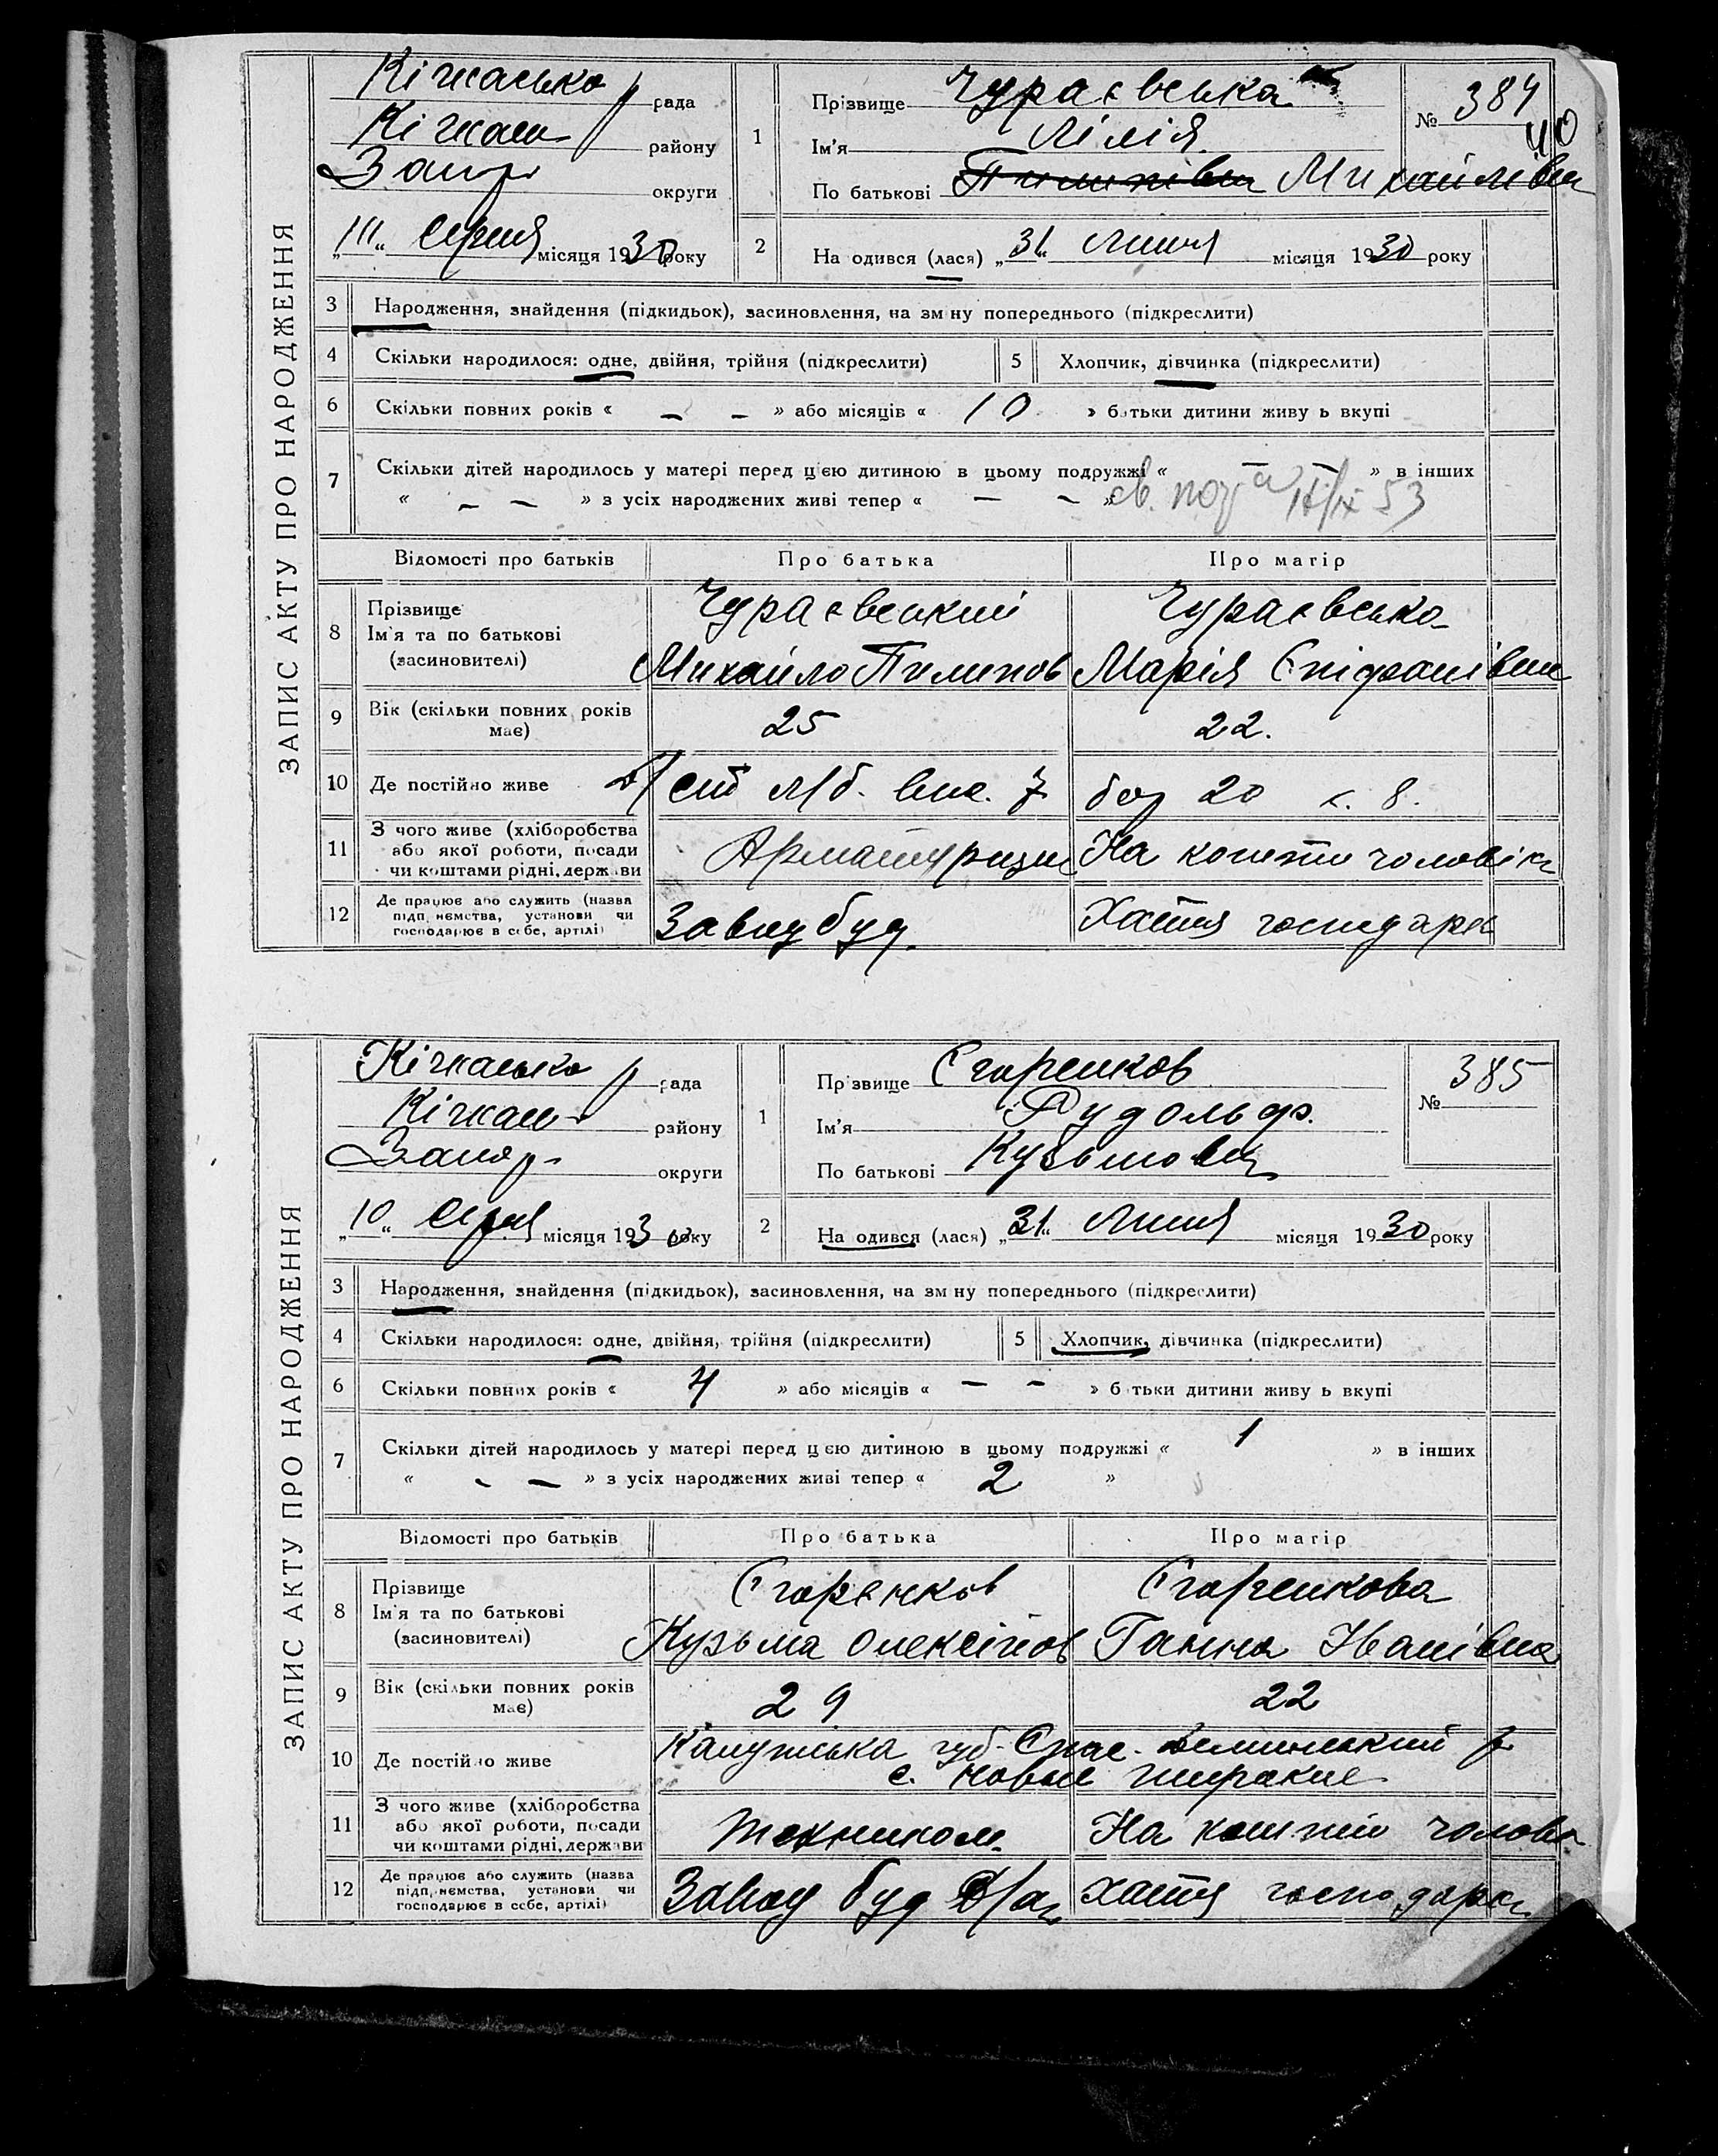 ЗАПИС АКТУ ПРО НАРОДЖЕННЯ
Кічкаська рада
Кічкас району
Запор округи
місяця 1930 року
1
Прізвище Чураєвська
Ім'я Лілія
По батькові Пилипівна Михайлівна
№ 384
40
2
На одився (лася) „31“ Липня місяця 1930 року
3 Народження, знайдення (підкидьок), засиновлення, на зм ну попереднього (підкреслити)
4 Скільки народилося: одне, двійня, трійня (підкреслити) 5 Хлопчик, дівчинка (підкреслити)
6 Скільки повних років « – – » або місяців « 10 » батьки дитини живу ь вкупі
7 Скільки дітей народилось у матері перед цією дитиною в цьому подружжі « – – » в інших
« – – » з усіх народжених живі тепер « – – »
Відомості про батьків Про батька Про матір
8 Прізвище Чураєвский Чураєвська
Ім'я та по батькові
(засиновителі) Михайло Пилипов Марія Єпіфанівна
9 Вік (скільки повних років має) 25 22.
10 Де постійно живе бар 20 к. 8.
11 З чого живе (хліборобства
або якої роботи, посади
чи коштами рідні, держави На кошти чоловіка
12 Де працює або служить (назва
підприємства, установи чи
господарює в себе, артілі) Хатня господарк
ЗАПИС АКТУ ПРО НАРОДЖЕННЯ
Кічкаська рада
Кічкас району
Запор округи
„10“ Серпня місяця 1930 року
1
Прізвище Єгоренков
Ім'я Рудольф.
По батькові Кузьмович
№ 385
2
На одився (лася) „31“ Липня місяця 1930 року
3 Народження, знайдення (підкидьок), засиновлення, на зм ну попереднього (підкреслити)
4 Скільки народилося: одне, двійня, трійня (підкреслити) 5 Хлопчик, дівчинка (підкреслити)
6 Скільки повних років « 4 » або місяців « – – » б тьки дитини живу ь вкупі
7 Скільки дітей народилось у матері перед цєю дитиною в цьому подружжі « 1 » в інших
« – – » з усіх народжених живі тепер « 2 »
Відомості про батьків Про батька Про матір
8 Прізвище Єгоренков Єгоренкова
Ім'я та по батькові
(засиновителі) Кузьма Олексійов Ганна Іванівна
9 Вік (скільки повних років має) 29 22
10 Де постійно живе Калужська губ. Спас-Деминський р
с. Новые
11 З чого живе (хліборобства
або якої роботи, посади
чи коштами рідні, держави Техником. На кошти чолові
12 Де працює або служить (назва
підприємства, установи чи
господарює в себе, артілі) Хатня господарк